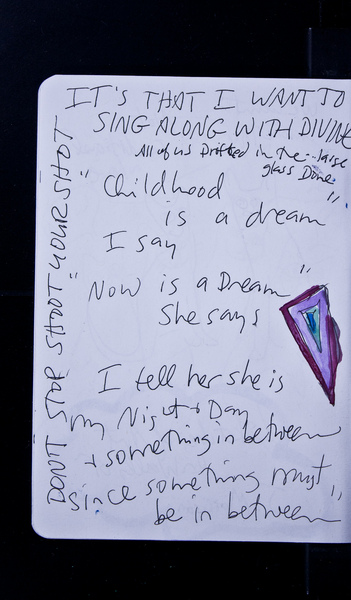 IT'S THAT I WANT TO
SING ALONG WITH DIVINE
All of us Drifted in the large
glass Dome
"Childhood
is a dream"
I say
"Now is a Dream"
She says
I tell her she is
my Night + Day
+ something in between
since something must
be in between"
DON'T STOP SHOOT YOUR SHOT